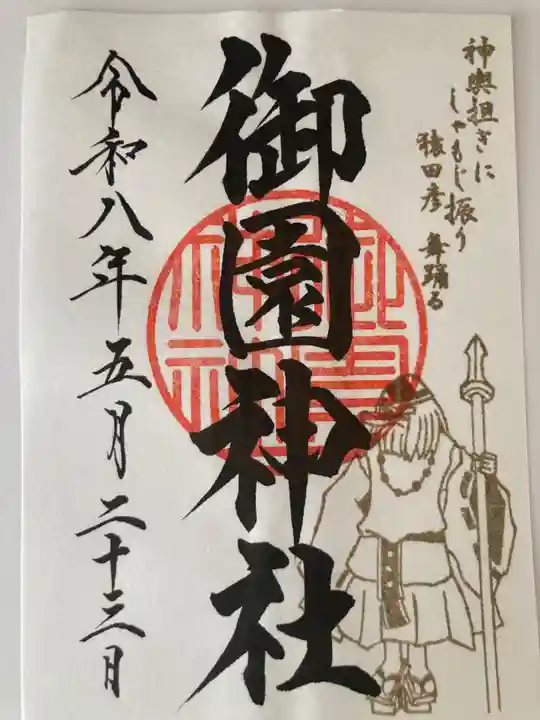 神輿担ぎに
しゃもじ振り
猿田彦 舞踊る
御園神社
令和八年五月二十三日